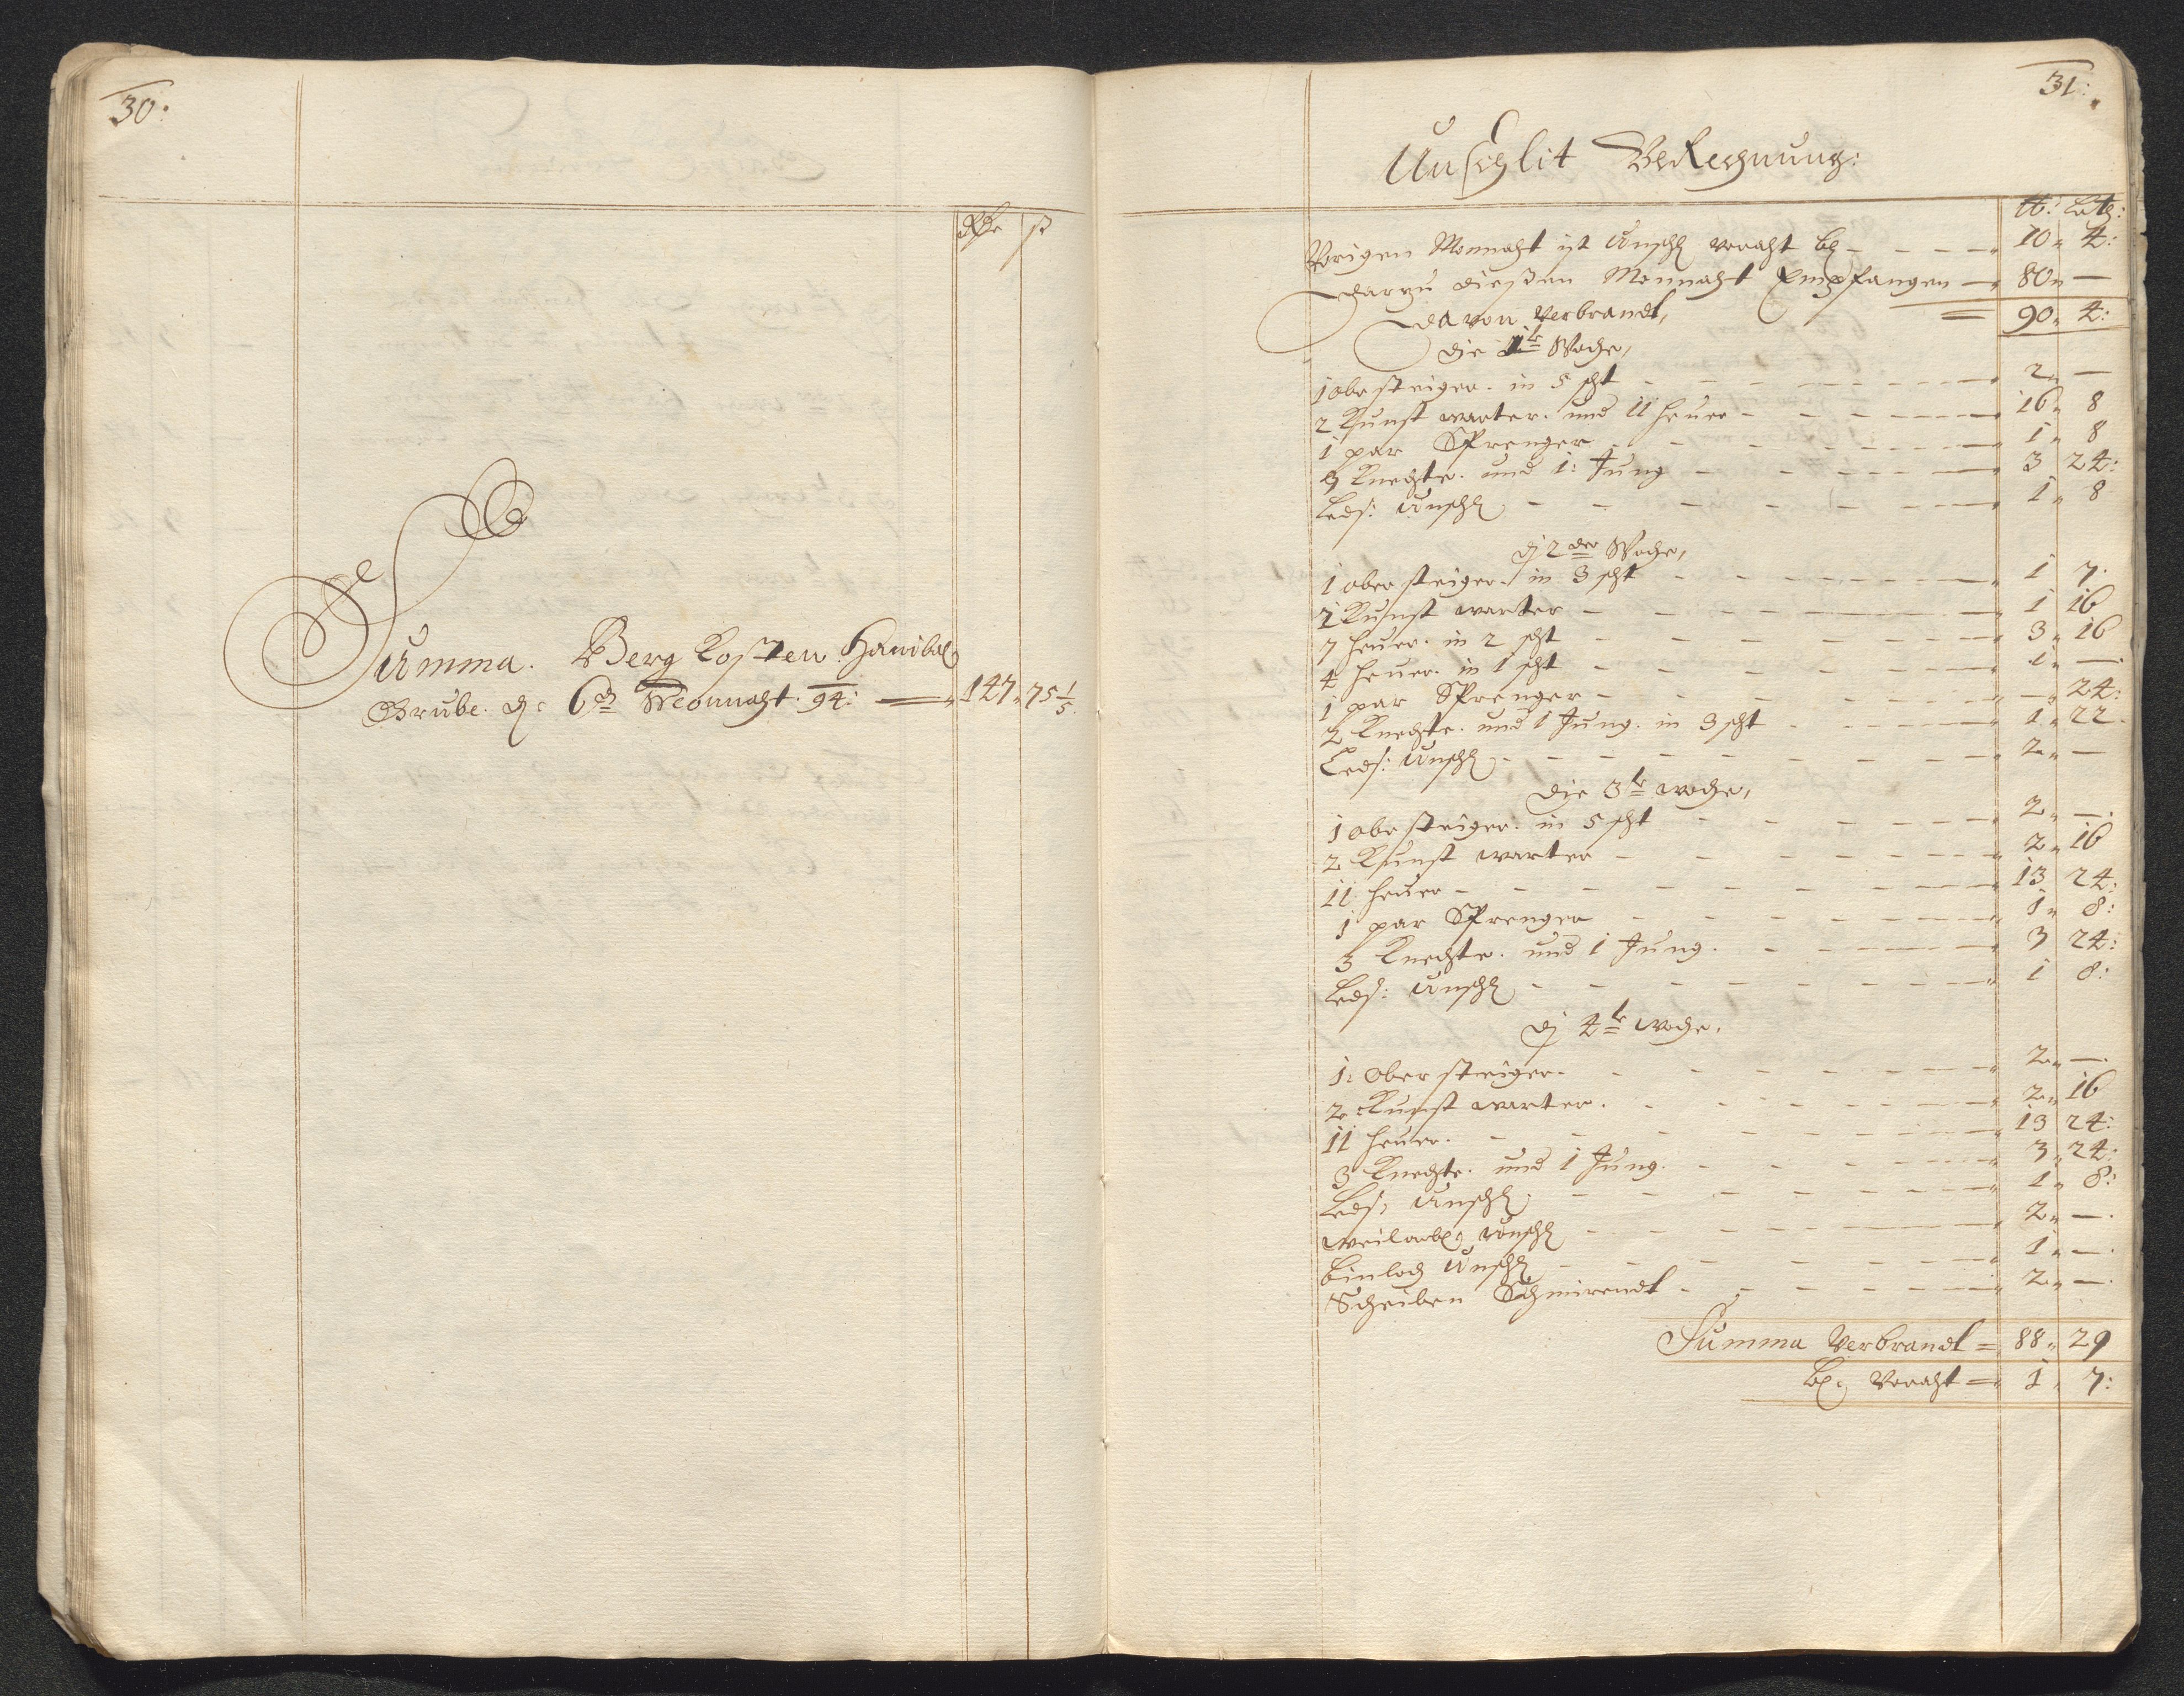 30:
Rthr ß
Summa. Berg Kosten Hanibal
Grube. d: 6th Monnaht. 94: 147 75 1/5
31:
Unschlit BeRechnung:
lb: Loth:
Vorigen Monnaht ist Unschl voraht bl 10 4:
darzu dießen Monnaht Empfangen 80 —
davon verbrandt, 90 4:
die 1te Woche,
1 obesteiger. in 5 scht 2 —
2 Kunst warter. und 11 heuer 16 8
1 par Sprenger 1 8
3 Knechte. und 1: Jung 3 24:
Leds: Unschl 1 8
dj 2der Woche,
1 ober steiger. in 3 scht 1 7.
2 Kunst warter 1 16
7 heuer. in 2 scht 3 16
4 heuer. in 1 scht 1 —
1 par Sprenger — 24:
2 Knechte. und 1 Jung. in 3 scht 1 22
Leds: Unschl 2 —
die 3te woche,
1 obe steiger. in 5 scht 2 —
2 Kunst warter 2 16
11 heuer 13 24:
1 par Sprenger 1 8:
3 Knechte. und 1 Jung. 3 24:
Leds: Unschl 1 8:
dj 4te woche.
1: Ober steiger. 2 —
2 Kunst warter. 2 16
11 heuer. 13 24:
3 Knechte. und 1 Jung. 3 24:
Leds: Unschl 1 8:
weilarb: unschl 2 —
Unschl 1 —
Scheiben Schmirendt 2 —
Summa verbrandt = 88 29
bl: Voraht = 1 7: